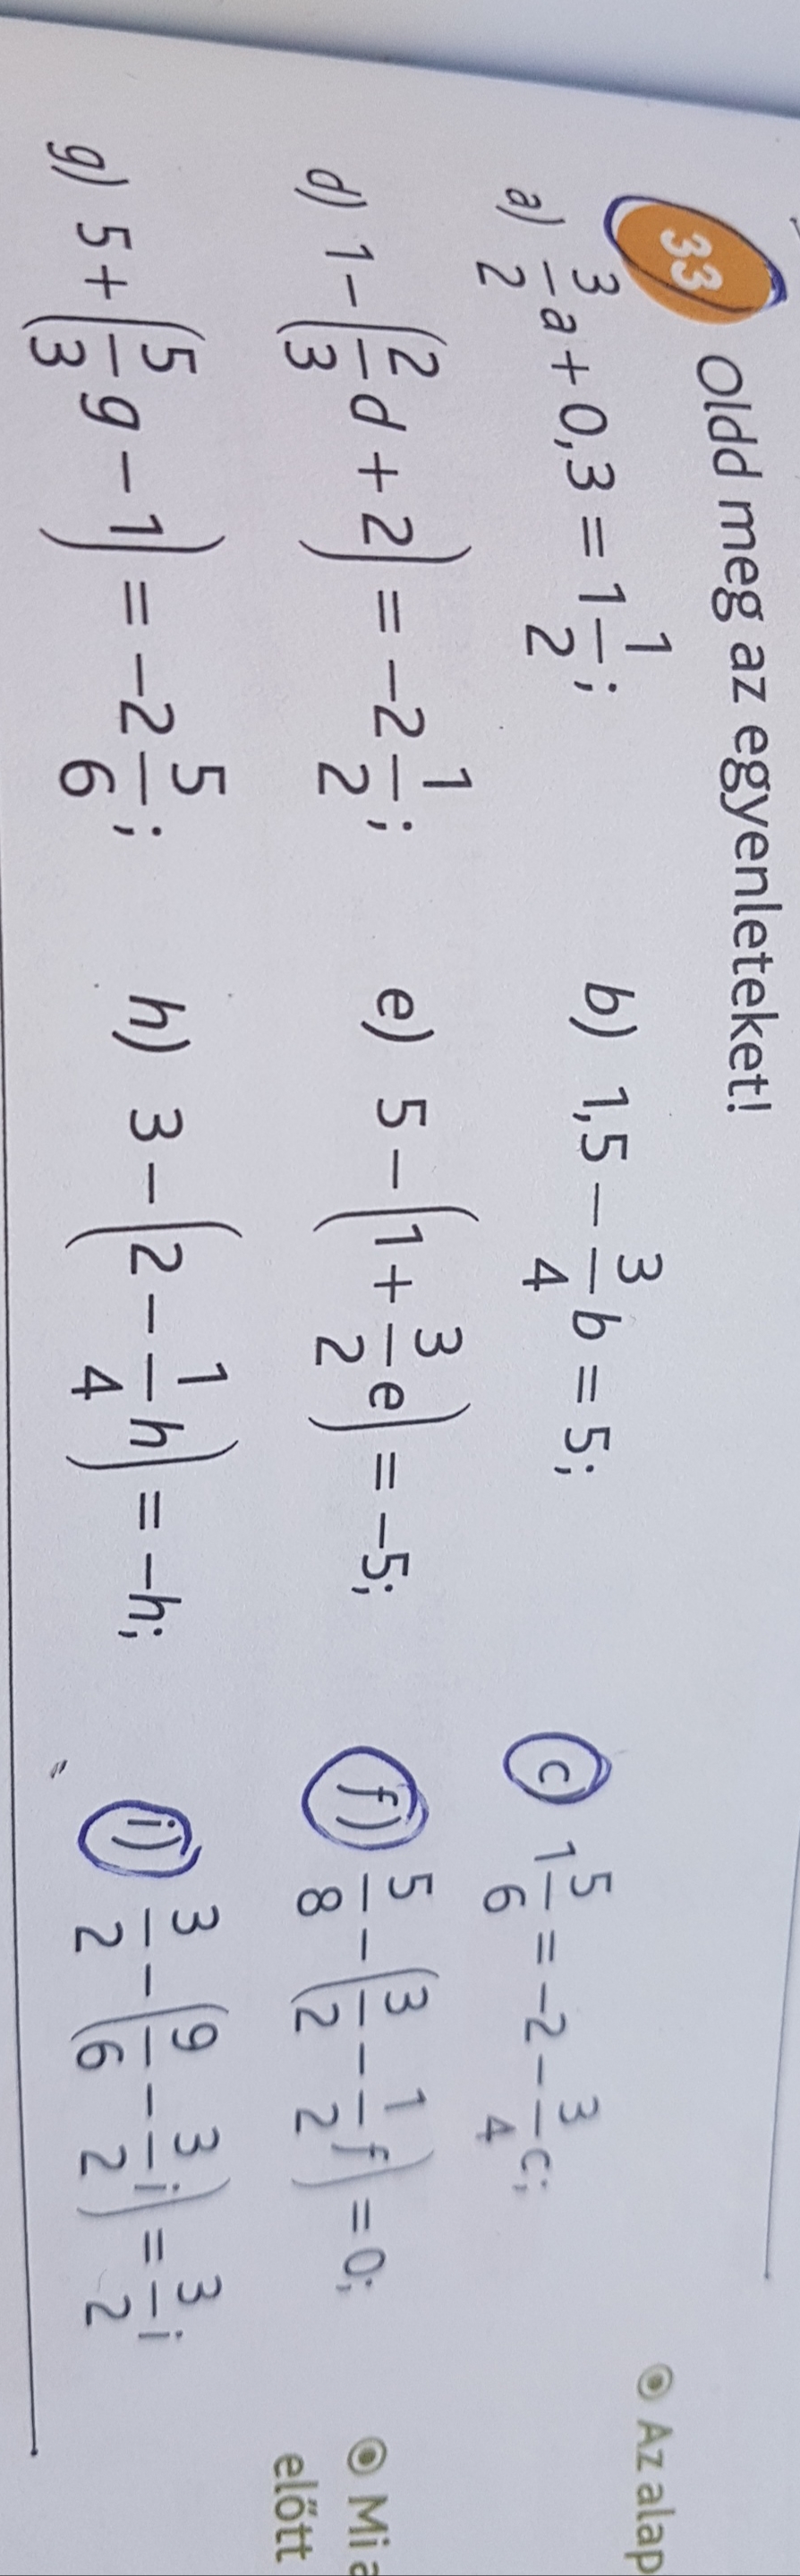 33 Oldd meg az egyenleteket!
a) 3/2 a + 0,3 = 1 1/2; b) 1,5 − 3/4 b = 5; c) 1 5/6 = −2 − 3/4 c;
d) 1 − (2/3 d + 2) = −2 1/2; e) 5 − (1 + 3/2 e) = −5; f) 5/8 − (3/2 − 1/2 f) = 0;
g) 5 + (5/3 g − 1) = −2 5/6; h) 3 − (2 − 1/4 h) = −h; i) 3/2 − (9/6 − 3/2 i) = 3/2 i
Az alap
Mi a
előtt